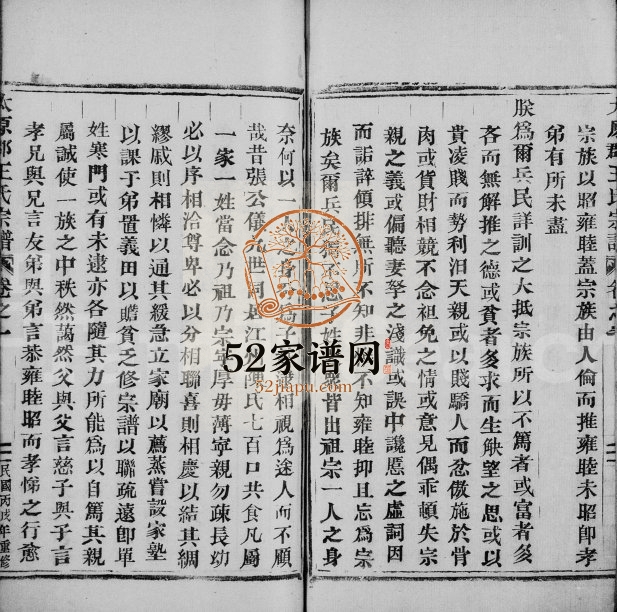 太原郡王氏宗譜 卷之一
宗族以昭雍睦蓋宗族由人倫而推雍睦未昭卽孝
弟有所未盡
朕爲爾兵民詳訓之大抵宗族所以不篤者或富者多
吝而無解推之德或貧者多求而生觖望之思或以
貴凌賤而勢利汨天親或以賤驕人而忿傲施於骨
肉或貨財相競不念袒免之情或意見偶乖頓失宗
親之義或偏聽妻孥之淺識或誤中讒慝之虛詞因
而詬誶傾排無所不知非不知雍睦抑且忘爲宗
族矣爾兵民獨不思子姓皆出祖宗一人之身
奈何以一人之身子相視爲途人而不顧
哉昔張公儀九世同居江州陳氏七百口共食凡屬
一家一姓當念乃祖乃宗寧厚毋薄寧親勿疎長幼
必以序相洽尊卑必以分相聯喜則相慶以結其綢
繆戚則相憐以通其緩急立家廟以薦蒸嘗設家塾
以課子弟置義田以贍貧乏修宗譜以聯疏遠卽單
姓寒門或有未逮亦各隨其力所能爲以自篤其親
屬誠使一族之中秩然藹然父與父言慈子與子言
孝兄與兄言友弟與弟言恭雍睦昭而孝悌之行愈
太原郡王氏宗譜 卷之一
民國丙戌年重修
52家谱网
52jiapu.com